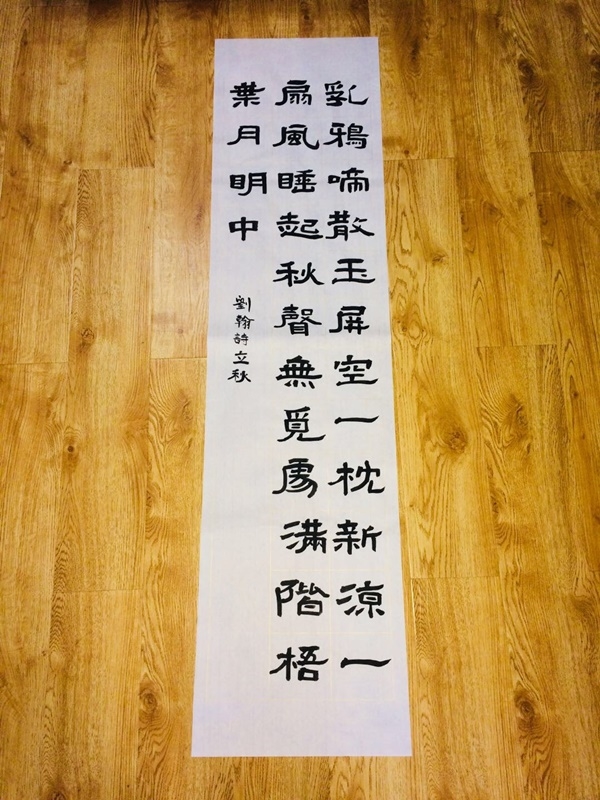 乳鴉啼散玉屏空一枕新涼一
扇風睡起秋聲無覓處滿階梧
葉月明中
劉翰詩立秋